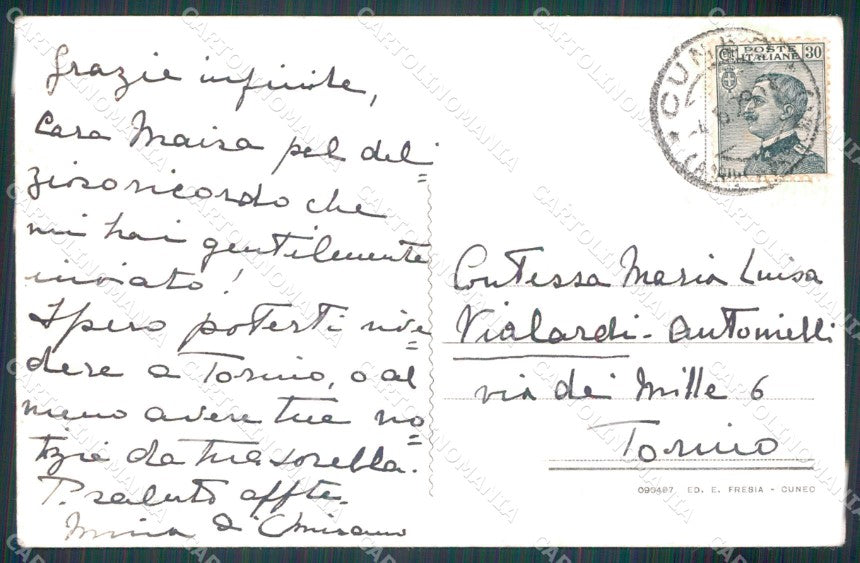 Grazie infinite,
Cara Maisa pel del=
zioso ricordo che
mi hai gentilmente
inviato!
Spero poterti rive=
dere a Torino, o al
meno avere tue no=
tizie da tua sorella.
T. saluto affte.
di
POSTE
ITALIANE
30
CUNEO
Contessa Maria Luisa
Vialardi - Antonielli
via dei Mille 6
Torino
099497 ED. E. FRESIA - CUNEO
CARTOLINOMANIA